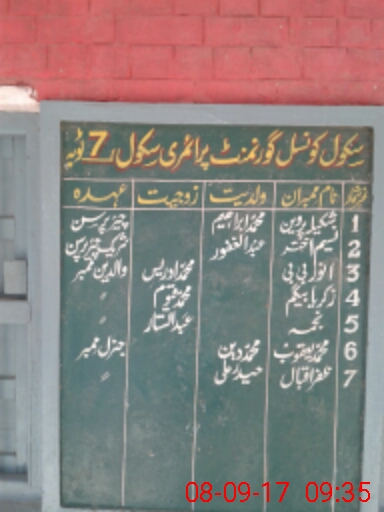 سکول کونسل گورنمنٹ پرائمری سکول 7 ٹوبہ
نمبرشمار نام ممبران ولدیت زوجیت عہدہ
1 شکیلہ پروین محمد ابراھیم چیئر پرسن
2 نسیم اختر عبدالغفور شریک چیئر پرسن
3 انور بی بی محمد ادریس والدین ممبر
4 زکریا بیگم محمد قیوم 〃
5 نجمہ عبدالستار 〃
6 محمد یعقوب محمد دین جنرل ممبر
7 ظفر اقبال حیدر علی 〃
08-09-17 09:35